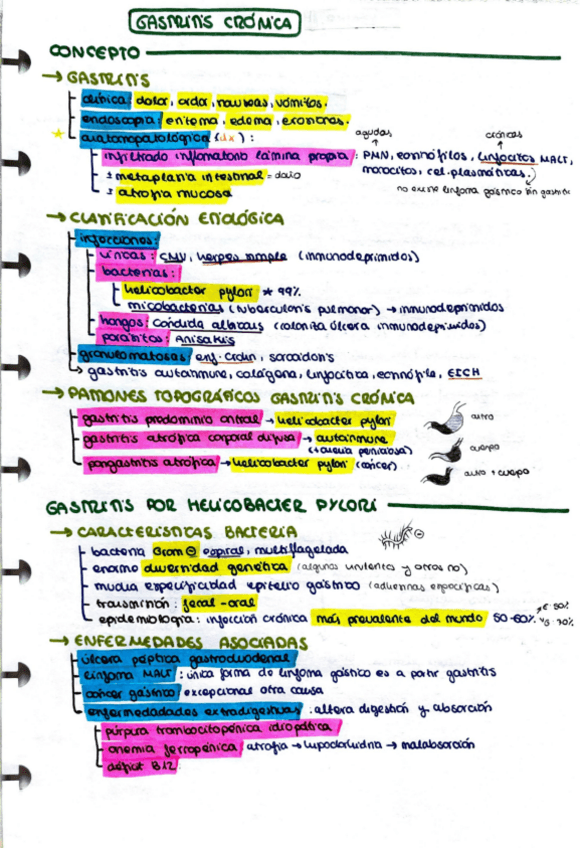 GASTRITIS CRÓNICA
CONCEPTO
→ GASTRITIS
clínica: dolor, ardor, nauseas, vómitos.
endoscopia: eritema, edema, erosiones.
anatomopatológica (dx):
agudos crónicas
infiltrado inflamatorio lámina propia: PMN, eosinófilos, linfocitos MALT,
monocitos, cel. plasmáticas.)
± metaplasia intestinal = daño
no existe linfoma gástrico sin gastritis
± atrofia mucosa
→ CLASIFICACIÓN ETIOLÓGICA
infecciones:
víricas: CMV, herpes simple (inmunodeprimidos)
bacterias:
helicobacter pylori * 99%
micobacterias (tuberculosis pulmonar) → inmunodeprimidos
hongos: Candida albicans (coloniza úlcera inmunodeprimidos)
parásitos: Anisakis
granulomatosas: enf. Crohn, sarcoidosis
→ gastritis autoinmune, colágena, linfocítica, eosinófila, EICH
→ PATRONES TOPOGRÁFICOS GASTRITIS CRÓNICA
gastritis predominio antral → helicobacter pylori
antro
gastritis atrófica corporal difusa → autoinmune
(+ anemia perniciosa)
cuerpo
pangastritis atrófica → helicobacter pylori (cáncer)
antro + cuerpo
GASTRITIS POR HELICOBACTER PYLORI
→ CARACTERÍSTICAS BACTERIA
bacteria Gram ⊖ espiral, multiflagelada
⊖
enorme diversidad genética (algunas virulentas y otras no)
mucha especificidad epitelio gástrico (adhesinas específicas)
transmisión: fecal-oral
epidemiología: infección crónica más prevalente del mundo 50-60%
→ ENFERMEDADES ASOCIADAS
úlcera péptica gastroduodenal
linfoma MALT: única forma de linfoma gástrico es a partir gastritis
cáncer gástrico: excepcional otra causa
enfermedadades extradigestivas: altera digestión y absorción
púrpura trombocitopénica idiopática
anemia ferropénica atrofia → hipoclorhidria → malabsorción
déficit B12